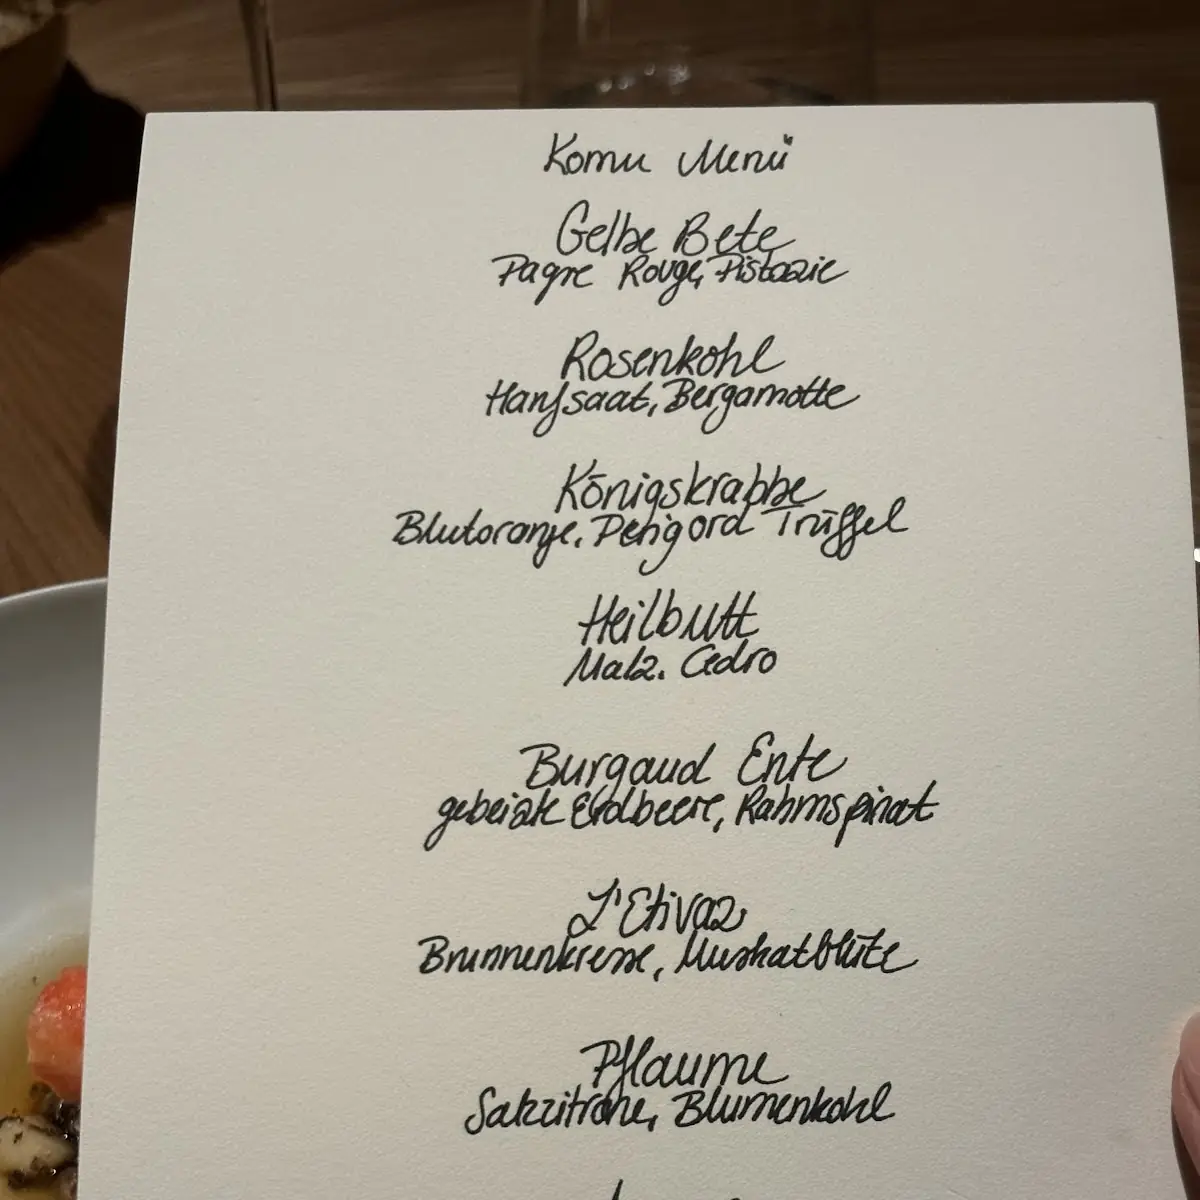 Komu Menü
Gelbe Bete
Pagre Rouge, Pistazie
Rosenkohl
Hanfsaat, Bergamotte
Königskrabbe
Blutorange, Perigord Trüffel
Heilbutt
Malz, Cedro
Burgaud Ente
gebeizte Erdbeere, Rahmspinat
L'Etivaz
Brunnenkresse, Muskatblüte
Pflaume
Salzzitrone, Blumenkohl